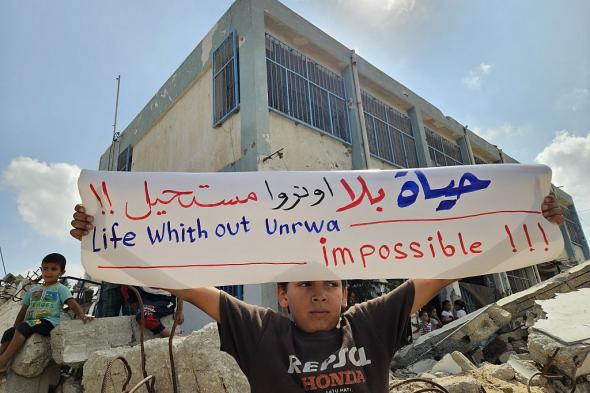 حياة بلا اونزوا مستحيل !!
Life Whith out Unrwa
impossible !!!
REPSOL
HONDA